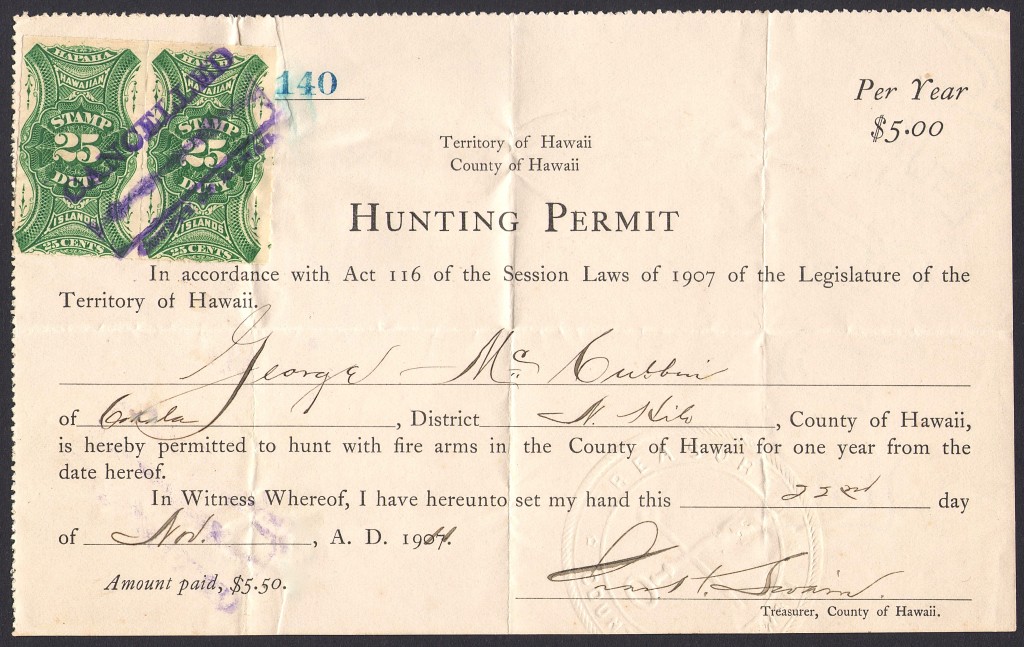 HAPAHA
HAWAIIAN
STAMP
25
DUTY
ISLANDS
25 CENTS
HAWAIIAN
STAMP
25
DUTY
ISLANDS
25 CENTS
CANCELLED
140
Per Year
$5.00
Territory of Hawaii
County of Hawaii
HUNTING PERMIT
In accordance with Act 116 of the Session Laws of 1907 of the Legislature of the
Territory of Hawaii.
George Mc Cubbin
of Ookala, District N. Hilo, County of Hawaii,
is hereby permitted to hunt with fire arms in the County of Hawaii for one year from the
date hereof.
In Witness Whereof, I have hereunto set my hand this 22nd day
of Nov., A. D. 190
Amount paid, $5.50.
Swain.
Treasurer, County of Hawaii.